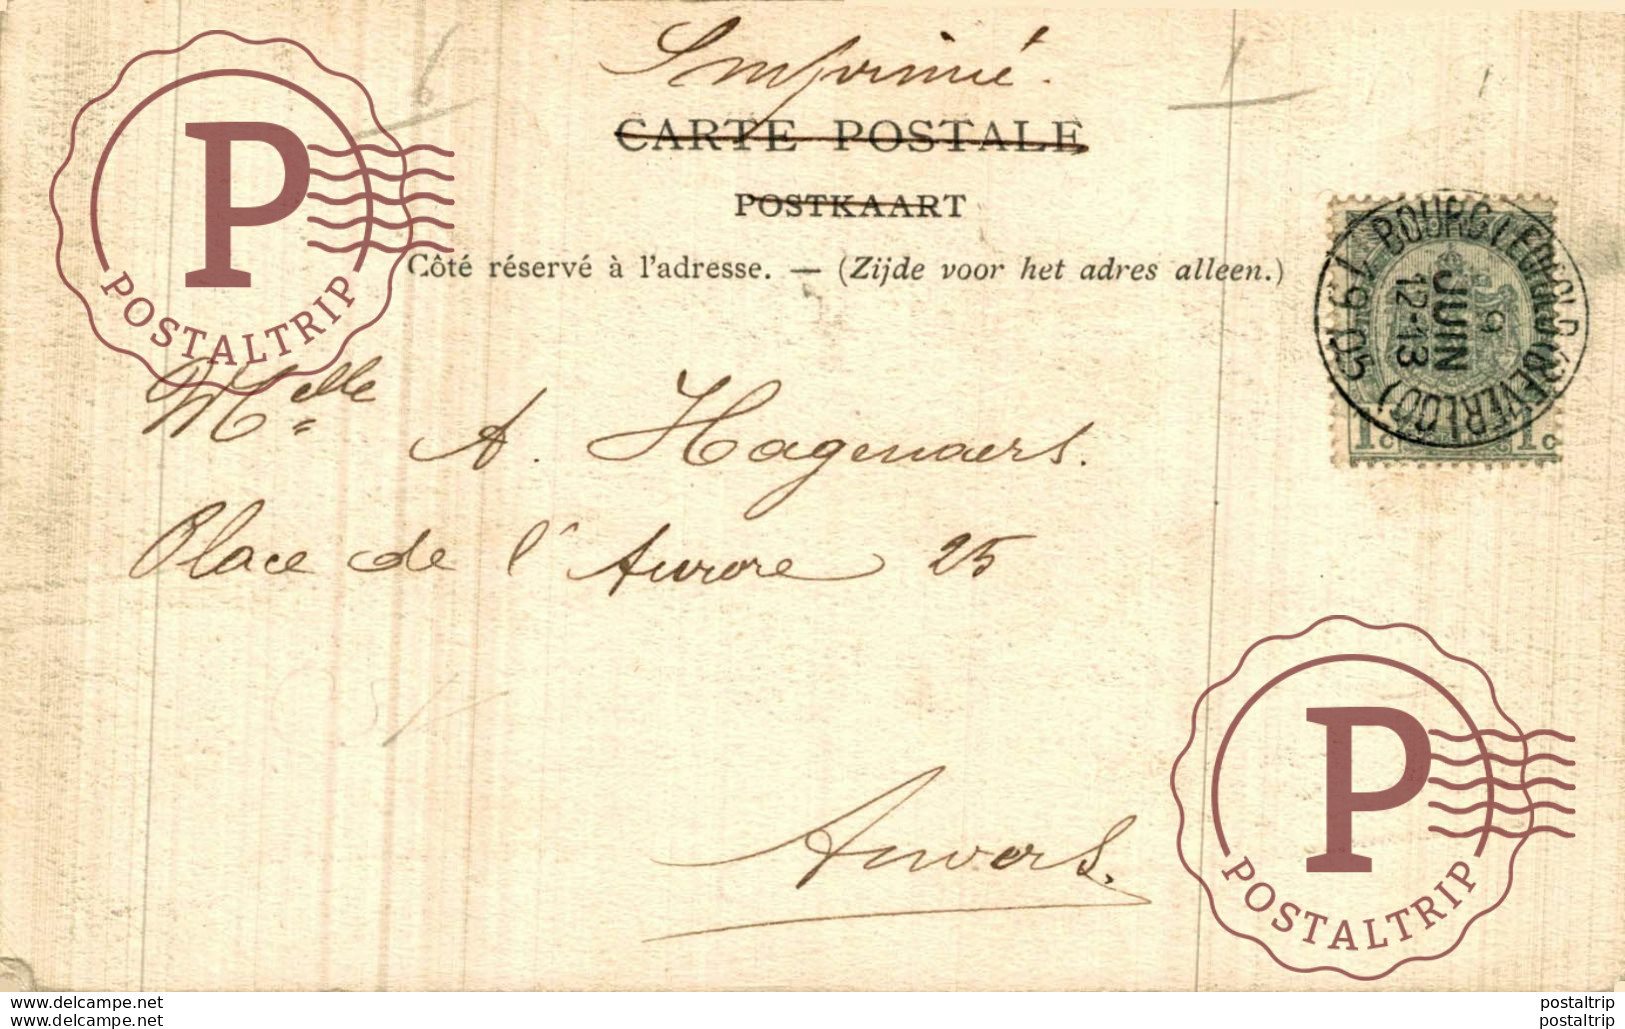 Imprimé.
CARTE POSTALE
POSTKAART
Côté réservé à l'adresse. — (Zijde voor het adres alleen.)
BOURG LEOPOLD (BEVERLOO)
9
JUIN
12-13
1905
1c 1c
Melle A. Hagenaers.
Place de l'Aurore 25
Anvers.
P
POSTALTRIP
P
POSTALTRIP
www.delcampe.net postaltrip
www.delcampe.net postaltrip